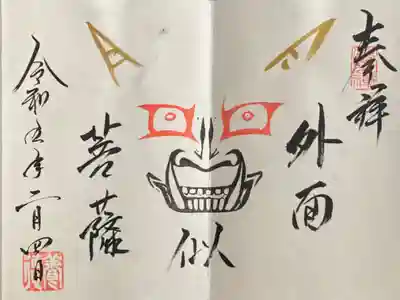 奉拝
外面
似
菩薩
令和五年二月四日